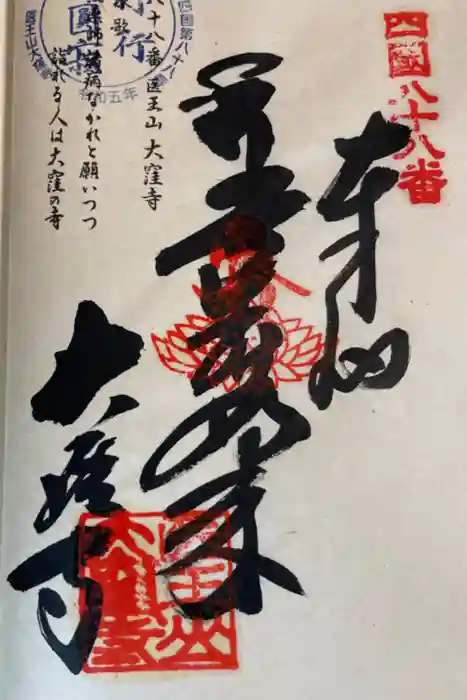 四國八十八番
奉納
如来
大窪寺
八十八番 医王山 大窪寺
薬師 諸病なかれと願いつつ
詣れる人は大窪の寺
四国第八十八
医王山大
令和五年
医王山
大窪寺